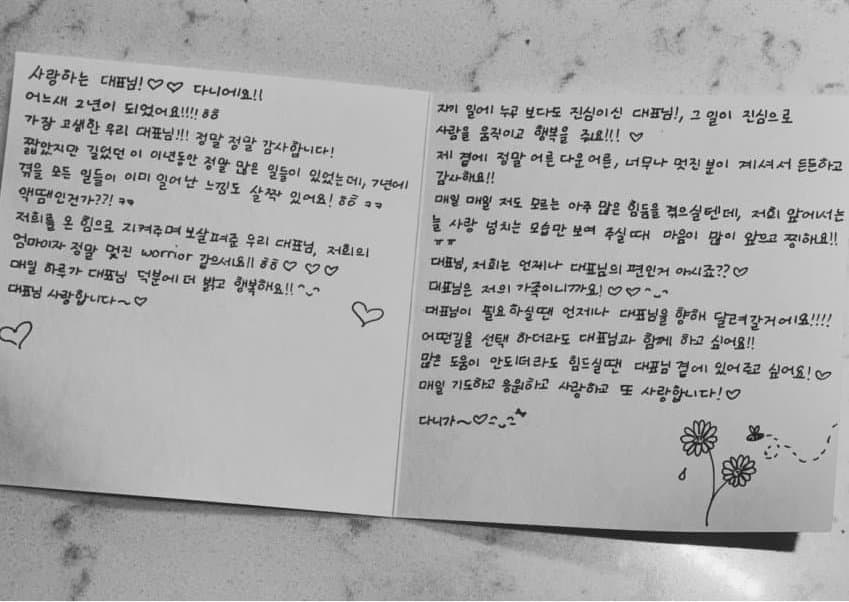 사랑하는 대표님!♡♡ 다니에요!!
어느새 2년이 되었어요!!!! ㅎㅎ
가장 고생한 우리 대표님!!! 정말 정말 감사합니다!
짧았지만 길었던 이 이년동안 정말 많은 일들이 있었는데, 7년에
겪을 모든 일들이 이미 일어난 느낌도 살짝 있어요! ㅎㅎ ㅋㅋ
액땜인건가??! ㅋㅋ
저희를 온 힘으로 지켜주며 보살펴준 우리 대표님, 저희의
엄마이자 정말 멋진 worrior 같으세요!! ㅎㅎ♡ ♡♡
매일 하루가 대표님 덕분에 더 밝고 행복해요!! ^_^
대표님 사랑합니다~♡
자기 일에 누구 보다도 진심이신 대표님!, 그 일이 진심으로
사람을 움직이고 행복을 줘요!!! ♡
제 곁에 정말 어른 다운 어른, 너무나 멋진 분이 계셔서 든든하고
감사해요!!
매일 매일 저도 모르는 아주 많은 힘듦을 겪으실텐데, 저희 앞에서는
늘 사랑 넘치는 모습만 보여 주실때 마음이 많이 앞으고 찡해요!!
ㅠㅠ
대표님, 저희는 언제나 대표님의 편인거 아시죠?? ♡
대표님은 저의 가족이니까요! ♡♡ ^_^
대표님이 필요하실땐 언제나 대표님을 향해 달려갈거에요!!!!
어떤길을 선택 하더라도 대표님과 함께 하고 싶어요!!
많은 도움이 안되더라도 힘드실땐 대표님 곁에 있어주고 싶어요! ♡
매일 기도하고 응원하고 사랑하고 또 사랑합니다! ♡
다니가~♡^_^